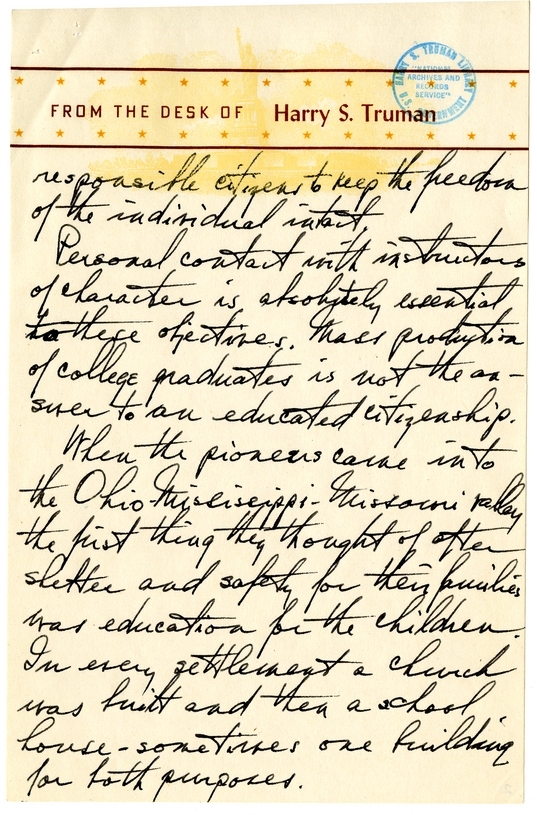 HARRY S. TRUMAN LIBRARY
"NATIONAL
ARCHIVES AND
RECORDS
SERVICE"
FROM THE DESK OF Harry S. Truman
responsible citizens to keep the freedom
of the individual intact.
Personal contact with instructors
of character is absolutely essential
to these objectives. Mass production
of college graduates is not the an-
swer to an educated citizenship.
When the pioneers came into
the Ohio-Mississippi-Missouri valley
the first thing they thought of after
shelter and safety for their families
was education for the children.
In every settlement a church
was built and then a school
house-sometimes one building
for both purposes.